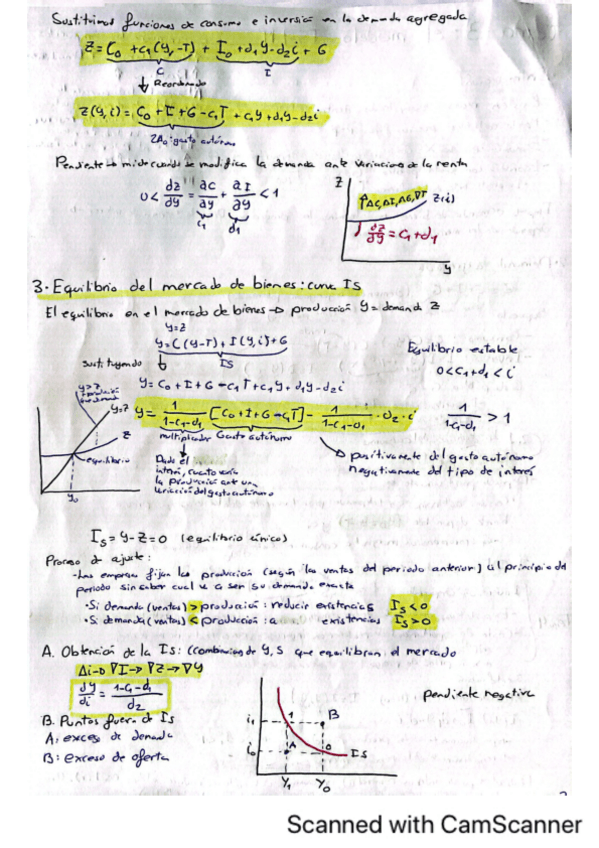 Sustituimos funciones de consumo e inversión en la demanda agregada
Z = C₀ + c₁(Y-T) + I₀ + d₁Y - d₂i + G
C I
↓ Reordenando
Z(Y,i) = C₀ + I + G - c₁T + c₁Y + d₁Y - d₂i
ZA₀: gasto autónomo
Pendiente → mide cuando se modifica la demanda ante variaciones de la renta
0 < dz/dy = ac/ay + aI/ay < 1
c₁ d₁
Z
↑ΔC, ΔI, ΔG, ∇T Z(i)
dz/dy = c₁ + d₁
y
3. Equilibrio del mercado de bienes: curva IS
El equilibrio en el mercado de bienes → producción Y = demanda Z
Y=Z
Y = C(Y-T) + I(Y,i) + G
IS
Equilibrio estable
0 < c₁ + d₁ < i
Sustituyendo ↓
Y = C₀ + I + G - c₁T + c₁Y + d₁Y - d₂i
Y = 1/1-c₁-d₁ [C₀ + I + G - c₁T] - 1/1-c₁-d₁ · d₂ · i
1/1-c₁-d₁ > 1
multiplicador Gasto autónomo
Y>Z
Y=Z
Z
equilibrio
Y₀
Dado el
interés, cuanto varía
la producción ante una
variación del gasto autónomo
→ positivamente del gasto autónomo
negativamente del tipo de interés
Is = Y - Z = 0 (equilibrio único)
Proceso de ajuste:
- Las empresas fijan la producción (según las ventas del periodo anterior) al principio del
periodo sin saber cual va a ser su demanda exacta
• Si demanda (ventas) > producción: reducir existencias Is < 0
• Si demanda (ventas) < producción: a existencias Is > 0
A. Obtención de la IS: (Combinaciones de Y, S que equilibran el mercado
Δi → ∇I → ∇Z → ∇Y
dy/di = 1-c₁-d₁/d₂
pendiente negativa
B. Puntos fuera de IS
A: exceso de demanda
B: exceso de oferta
i₁ 1 B
i₀ A 0 IS
Y₁ Y₀
Scanned with CamScanner